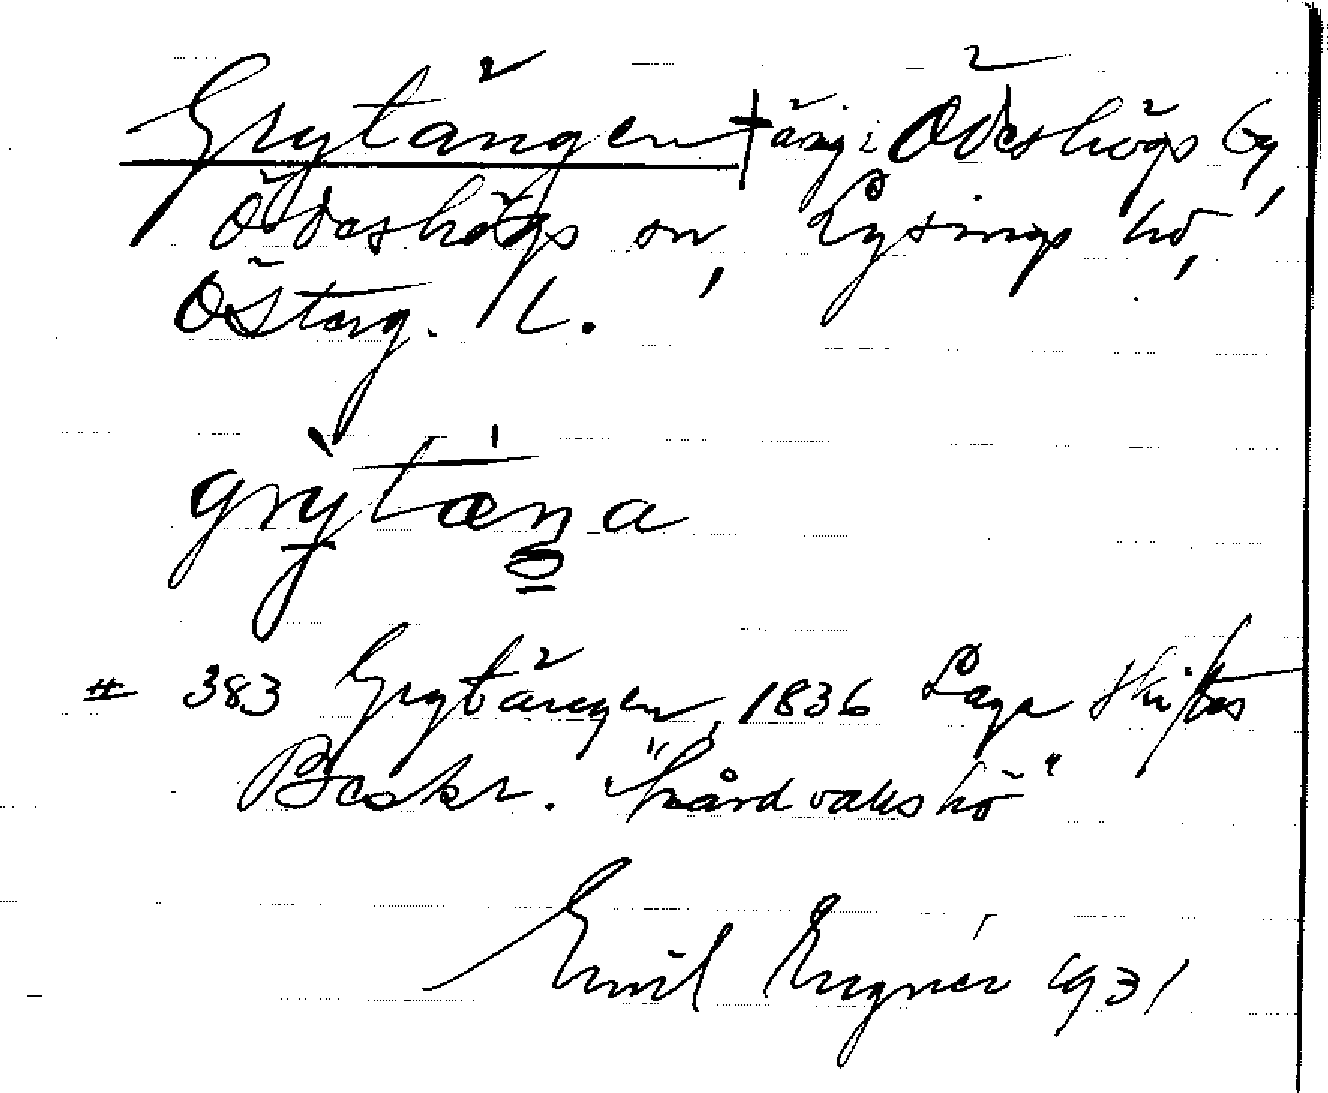 Grytängen † äng i Ödeshögs by,
Ödeshögs sn, Lysings hd,
Österg. L.
grỳtæŋa
# 383 Grytängen, 1836 Laga skiftes
Beskr. "hårdvalls hö"
Emil Engnér 1931